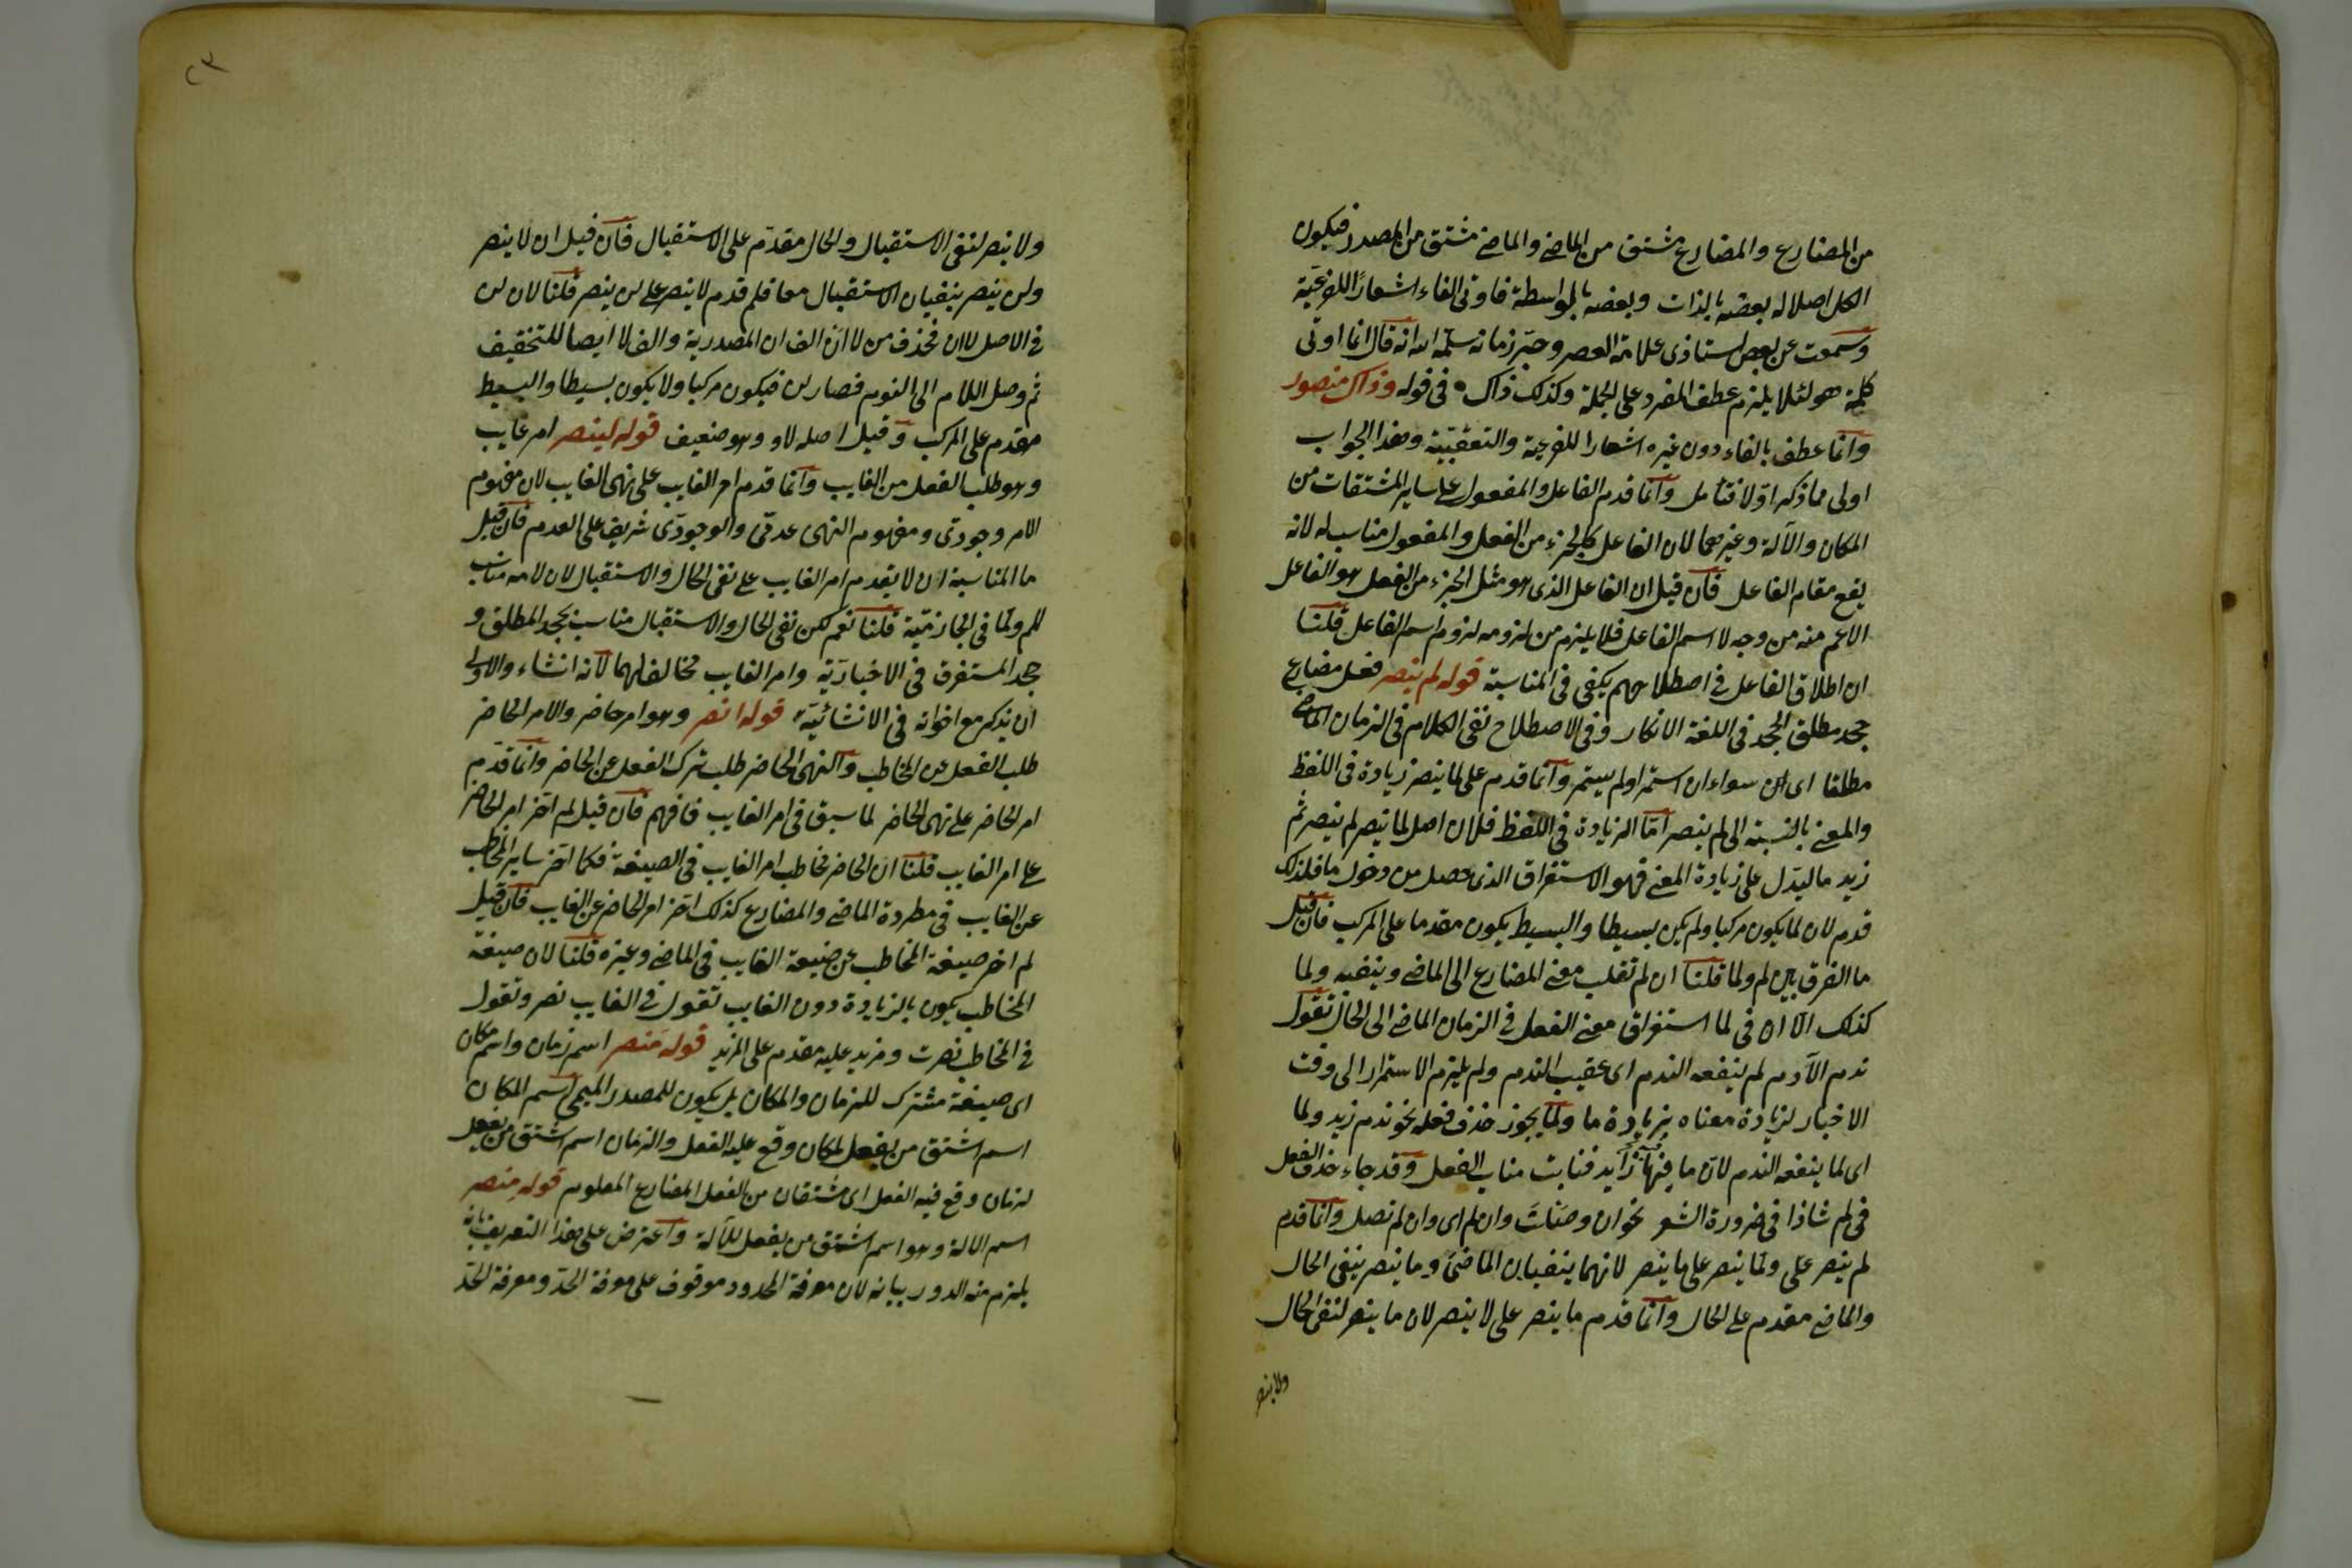 من المضارع والمضارع مشتق من الماضى والماضى مشتق من المصدر فيكون
الكل اصلا له بعضه بالذات وبعضه بالواسطة فاوتى الفاء اشعارا للفرعية
وسمعت عن بعض استاذى علامة العصر وحبر زمانه سلمه الله انه قال انما اوتى
كلمة هو لئلا يلزم عطف المفرد على الجملة وكذلك ذاك فى قوله وذاك منصور
وانما عطف بالفاء دون غيره اشعارا للفرعية والتعقيبية وهذا الجواب
اولى مما ذكر اولا فتأمل وانما قدم الفاعل والمفعول على ساير المشتقات من
المكان والآلة وغيرهما لان الفاعل كالجزء من الفعل والمفعول مناسب له لانه
يقع مقام الفاعل فان قيل ان الفاعل الذى هو مثل الجزء من الفعل هو الفاعل
الاعم منه من وجه لا اسم الفاعل فلا يلزم من لزومه لزوم اسم الفاعل قلنا
ان اطلاق الفاعل فى اصطلاحهم يكفى فى المناسبة قوله لم ينصر فعل مضارع
جحد مطلق الجحد فى اللغة الانكار وفى الاصطلاح نفى الكلام فى الزمان الماضى
مطلقا اى سواء ان استمر او لم يستمر وانما قدم على لما ينصر زيادة فى اللفظ
والمعنى بالنسبة الى لم ينصر اما الزيادة فى اللفظ فلان اصل لما ينصر لم ينصر ثم
زيد ما ليدل على زيادة المعنى فهو الاستغراق الذى حصل من دخول ما فلذلك
قدم لان لما يكون مركبا ولم يكن بسيطا والبسيط يكون مقدما على المركب فان قيل
ما الفرق بين لم ولما قلنا ان لم تقلب معنى المضارع الى الماضى وينفيه ولما
كذلك الا ان فى لما استغراق معنى الفعل فى الزمان الماضى الى الحال تقول
ندم الآدم لم ينفعه الندم اى عقيب الندم ولم يلزم الاستمرار الى وقت
الاخبار لزيادة معناه بزيادة ما ولما يجوز حذف فعله نحو ندم زيد ولما
اى لما ينفعه الندم لان ما فيها زايد فنابت مناب الفعل وقد جاء حذف الفعل
فى لم شاذا فى ضرورة الشعر نحو ان وصلت وان لم اى وان لم تصل وانما قدم
لم ينصر على ولما ينصر على ما ينصر لانهما ينفيان الماضى وما ينصر ينفى الحال
والماضى مقدم على الحال وانما قدم ما ينصر على لا ينصر لان ما ينصر لنفى الحال
ولا ينصر
٢٣
ولا ينصر لنفى الاستقبال والحال مقدم على الاستقبال فان قيل ان لا ينصر
ولن ينصر ينفيان الاستقبال معا فلم قدم لا ينصر على لن ينصر قلنا لان لن
فى الاصل لا ان فحذف من لا ان الف ان المصدرية والف لا ايضا للتخفيف
ثم وصل اللام الى النون فصار لن فيكون مركبا ولا يكون بسيطا والبسيط
مقدم على المركب وقيل اصله لاو وهو ضعيف قوله لينصر امر غايب
وهو طلب الفعل من الغايب وانما قدم امر الغايب على نهى الغايب لان مفهوم
الامر وجودى ومفهوم النهى عدمى والوجودى شريف على العدم فان قيل
ما المناسبة ان لا يقدم امر الغايب على نفى الحال والاستقبال لان لامه مناسب
للم ولما فى الجازمية قلنا نعم لكن نفى الحال والاستقبال مناسب بجحد المطلق و
جحد المستغرق فى الاخبارية وامر الغايب مخالف لهما لانه انشاء والاولى
ان يذكر مع اخواته فى الانشائية قوله انصر وهو امر حاضر والامر الحاضر
طلب الفعل عن المخاطب والنهى الحاضر طلب ترك الفعل عن الحاضر وانما قدم
امر الحاضر على نهى الحاضر لما سبق فى امر الغايب فافهم فان قيل لم اخر امر الحاضر
على امر الغايب قلنا ان الحاضر مخاطب امر الغايب فى الصيغة فكما اخر ساير المخاطب
عن الغايب فى مطردة الماضى والمضارع كذلك اخر امر الحاضر عن الغايب فان قيل
لم اخر صيغة المخاطب عن صيغة الغايب فى الماضى وغيره قلنا لان صيغة
المخاطب يكون بالزيادة دون الغايب تقول فى الغايب نصر وتقول
فى المخاطب نصرت ومزيد عليه مقدم على المزيد قوله منصر اسم زمان واسم مكان
اى صيغة مشترك للزمان والمكان بل يكون للمصدر الميمى اسم المكان
اسم اشتق من يفعل لمكان وقع عليه الفعل والزمان اسم اشتق من يفعل
لزمان وقع فيه الفعل اى مشتقان من الفعل المضارع المعلوم قوله منصر
اسم الالة وهو اسم اشتق من يفعل للآلة واعترض على هذا التعريف بانه
يلزم منه الدور بيانه لان معرفة المحدود موقوف على معرفة الحد ومعرفة الحد